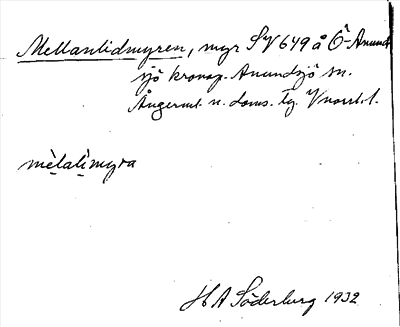 Mellanlidmyren, myr SV 649 å Ö-Anund
sjö kronop. Anundsjö sn.
Ångerml. n. doms. tg. Vnorrl. l.
mèlalìmyra
H A Söderburg 1932